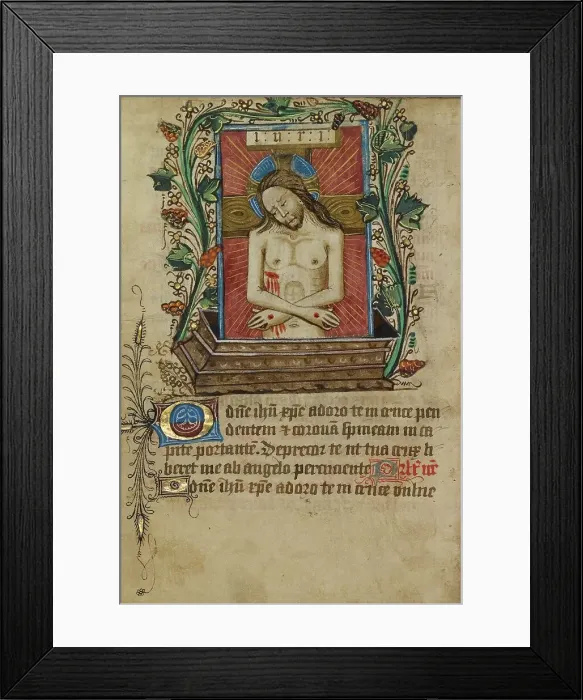 i : n : r : i
O dn̄e ihū xp̄e adoro te in cruce pen
dentem ⁊ coronā spineam in ca
pite portantē. Deprecor te ut tua crux li
beret me ab angelo percuciente
O dn̄e ihū xp̄e adoro te in cruce vulne